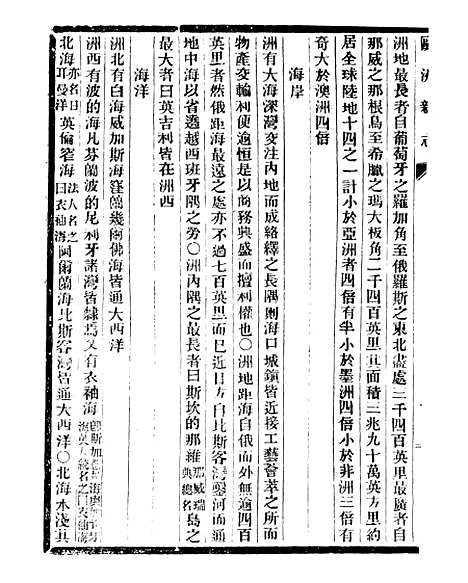 歐洲新志
洲地最長者自葡萄牙之羅加角至俄羅斯之東北盡處三千四百英里最廣者自
那威之那根島至希臘之瑪大板角二千四百英里其面積三兆九十萬英方里約
居全球陸地十四之一計小於亞洲者四倍有半小於墨洲四倍小於非洲三倍有
奇大於澳洲四倍
海岸
洲有大海深灣交注內地而成絡繹之長隅則海口城鎮皆近接工藝薈萃之所而
物產交輸利便逾恒是以商務興盛而擅利權也〇洲地距海自俄而外無逾四百
英里者然俄距海最遠之處亦不過七百英里而已近日自比斯客灣鑿河而通
地中海以省遶越西班牙隅之勞〇洲內隅之最長者曰斯坎的那維那威瑞典總名島之
最大者曰英吉利皆在洲西
海洋
洲北有白海威加斯海窪蘭幾闊佛海皆通大西洋
洲西有波的海凡芬蘭波的尼利牙諸灣皆隸焉又有衣袖海
北海亦名日耳曼洋英倫窄海法人名之曰衣袖海阿爾蘭海比斯客灣皆通大西洋〇北海水淺且